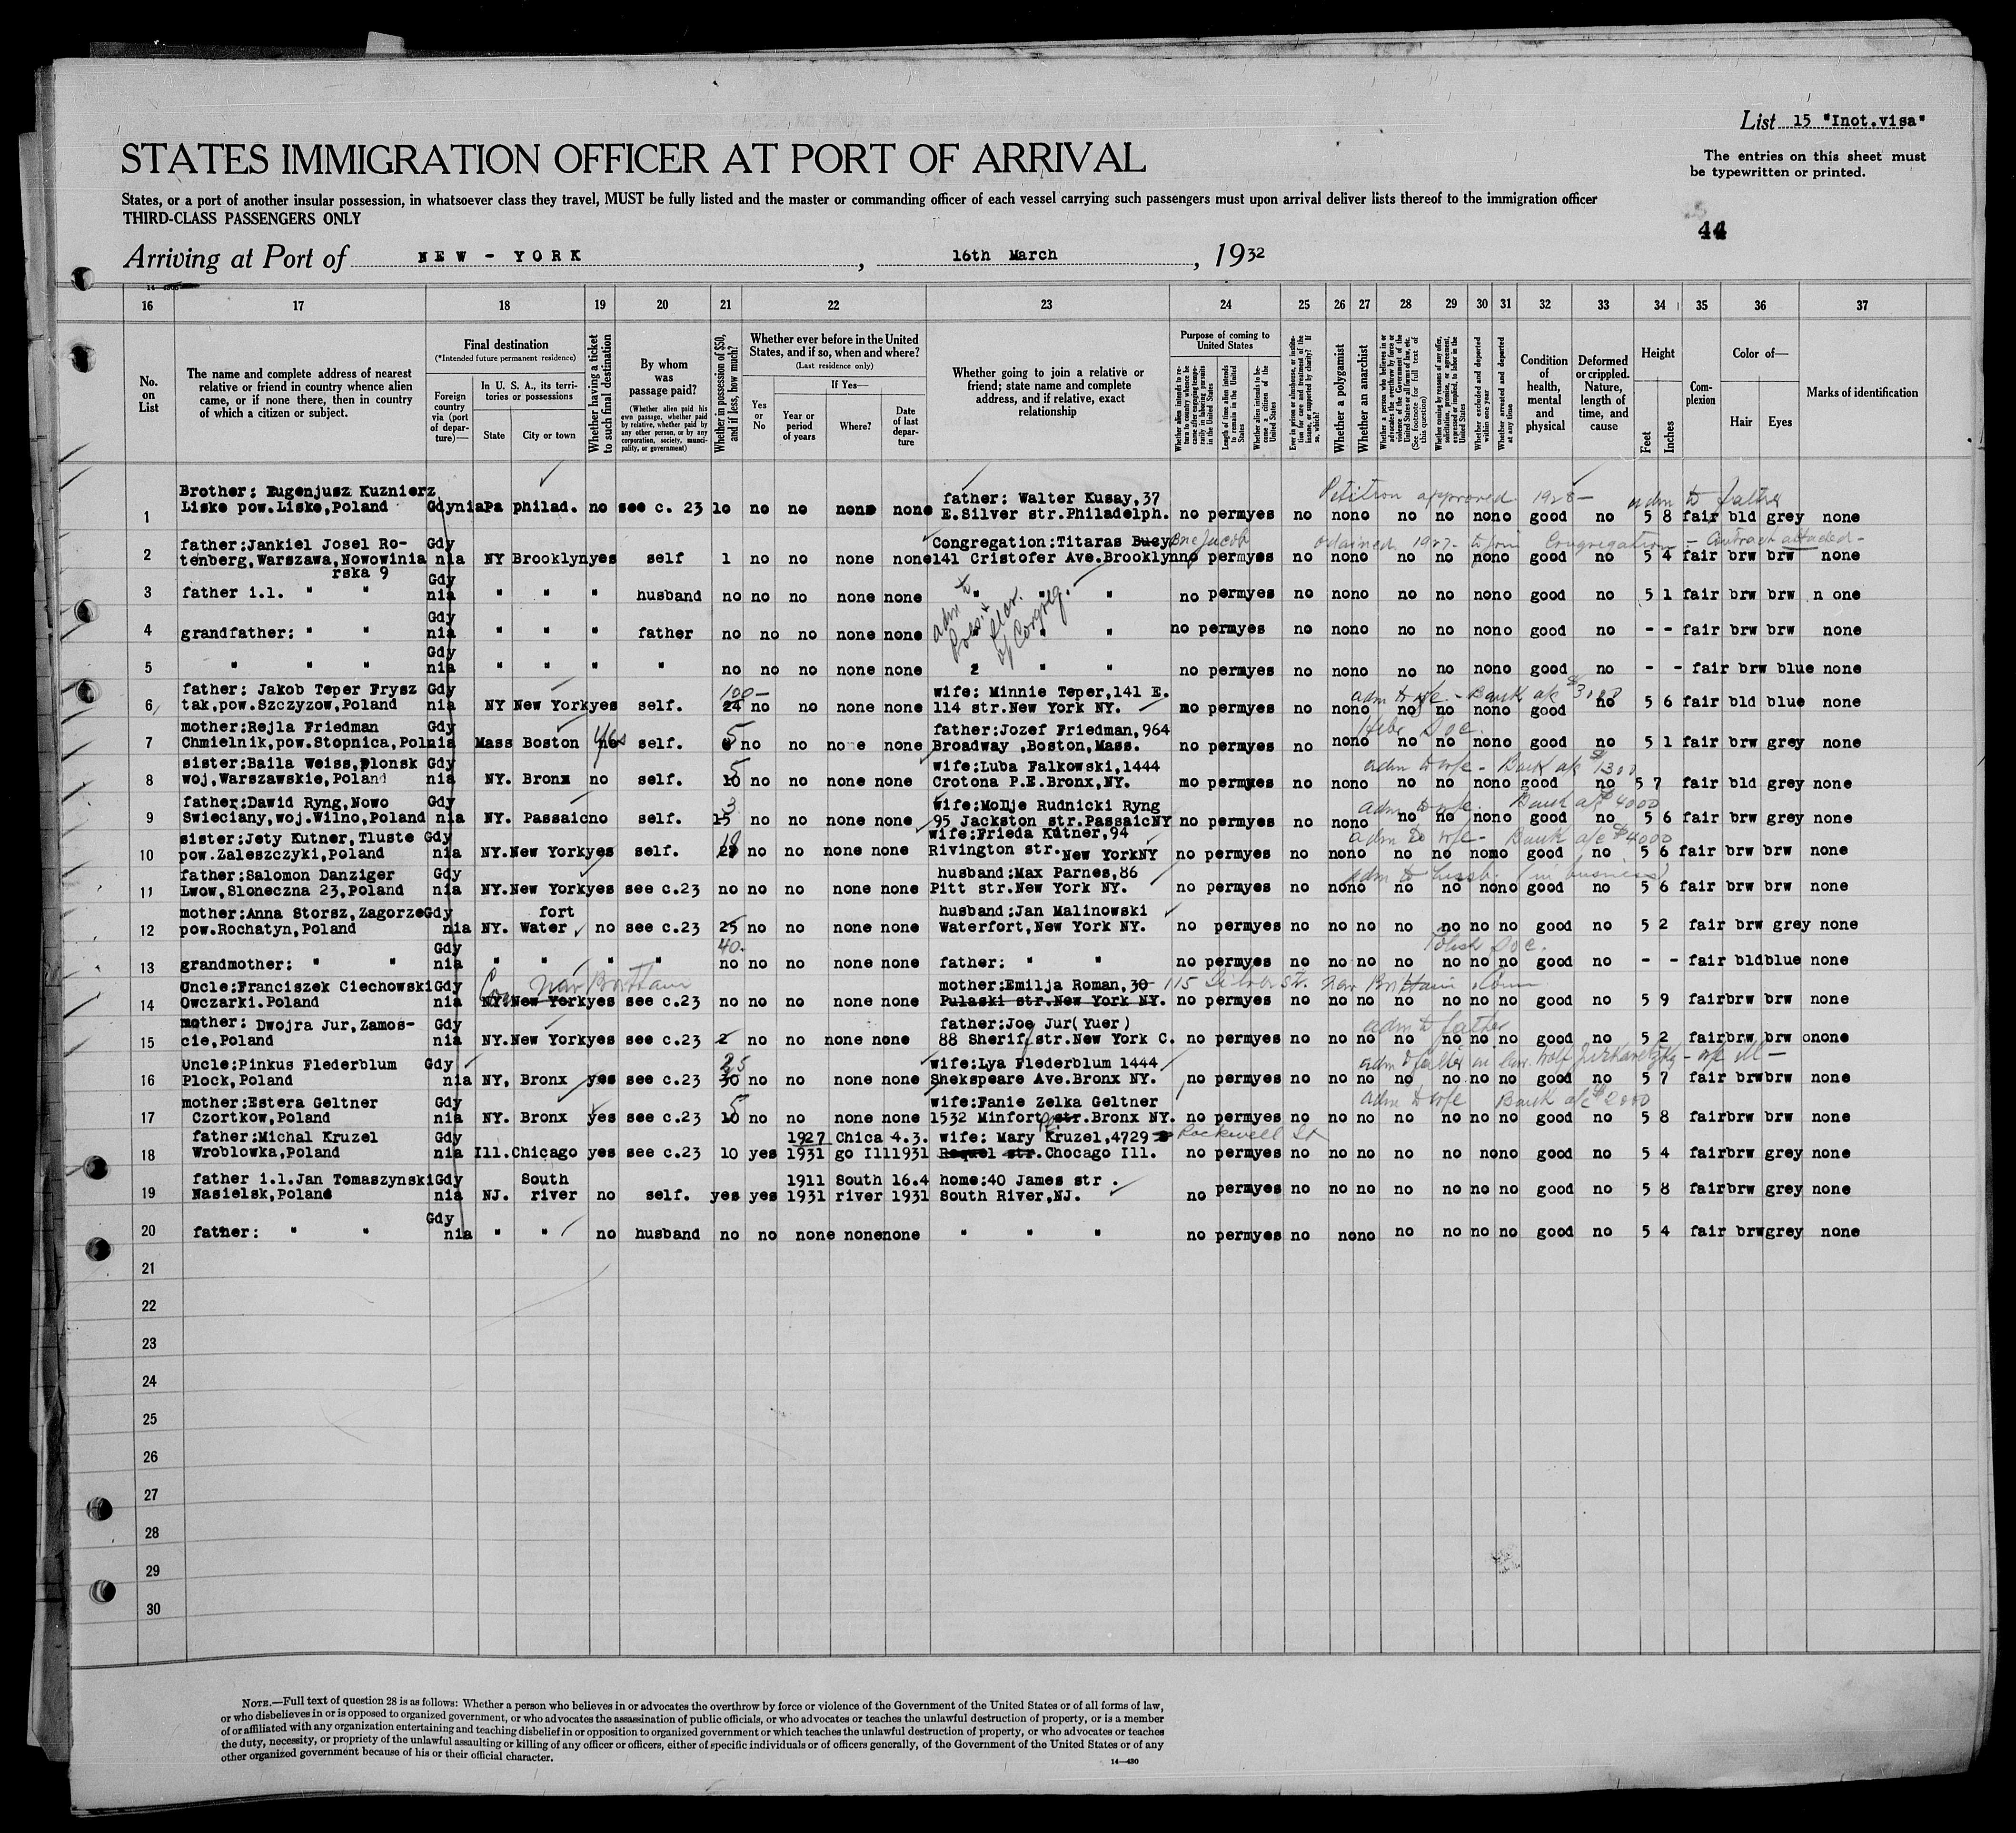 List 15 "Inot.visa"
STATES IMMIGRATION OFFICER AT PORT OF ARRIVAL
The entries on this sheet must
be typewritten or printed.
States, or a port of another insular possession, in whatsoever class they travel, MUST be fully listed and the master or commanding officer of each vessel carrying such passengers must upon arrival deliver lists thereof to the immigration officer
THIRD-CLASS PASSENGERS ONLY
44
Arriving at Port of NEW - YORK, 16th March, 1932
16 17 18 19 20 21 22 23 24 25 26 27 28 29 30 31 32 33 34 35 36 37
No. on List
The name and complete address of nearest relative or friend in country whence alien came, or if none there, then in country of which a citizen or subject.
Final destination
(*Intended future permanent residence)
Foreign country via (port of departure)—
In U. S. A., its territories or possessions
State
City or town
Whether having a ticket to such final destination
By whom was passage paid?
(Whether alien paid his own passage, whether paid by relative, whether paid by any other person, or by any corporation, society, municipality, or government)
Whether in possession of $50, and if less, how much?
Whether ever before in the United States, and if so, when and where?
(Last residence only)
Yes or No
If Yes—
Year or period of years
Where?
Date of last departure
Whether going to join a relative or friend; state name and complete address, and if relative, exact relationship
Purpose of coming to United States
Whether alien intends to return to country whence he came after engaging temporarily in laboring pursuits in the United States
Length of time alien intends to remain in the United States
Whether alien intends to become a citizen of the United States
Ever in prison or almshouse, or institution for care and treatment of the insane, or supported by charity? If so, which?
Whether a polygamist
Whether an anarchist
Whether a person who believes in or advocates the overthrow by force or violence of the Government of the United States or all forms of law, etc. (See footnote for full text of this question)
Whether coming by reasons of any offer, solicitation, promise, or agreement, expressed or implied, to labor in the United States
Whether excluded and deported within one year
Whether arrested and deported at any time
Condition of health, mental and physical
Deformed or crippled. Nature, length of time, and cause
Height
Feet
Inches
Complexion
Color of—
Hair
Eyes
Marks of identification
Petition approved 1928— adm to father
1 Brother: Eugenjusz Kuznierz Liske pow.Liske,Poland Gdynia Pa philad. no see c. 23 10 no no none none father: Walter Kusay,37 E.Silver str.Philadelph. no perm yes no no no no no no no good no 5 8 fair bld grey none
ordained 1927 to join Congregation - Contract attached -
2 father:Jankiel Josel Rotenberg,Warszawa,Nowowiniarska 9 Gdynia NY Brooklyn yes self 1 no no none none Congregation:Titaras Bucy Bne Jacob 141 Cristofer Ave.Brooklyn no perm yes no no no no no no no good no 5 4 fair brw brw none
3 father i.l. " " Gdynia " " " husband no no no none none " " " no perm yes no no no no no no no good no 5 1 fair brw brw n one
4 grandfather: " " Gdynia " " " father no no no none none " " no perm yes no no no no no no no good no - - fair brw brw none
5 " " " Gdynia " " " " no no no none none 2 " " no perm yes no no no no no no no good no - - fair brw blue none
100- adm to wfe - Bank a/c $3000
6 father: Jakob Teper Frysztak,pow.Szczyzow,Poland Gdynia NY New York yes self. 24 no no none none wife: Minnie Teper,141 E. 114 str.New York NY. mo perm yes no no no no no no no good no 5 6 fair bld blue none
Hebr Doc.
7 mother:Rejla Friedman Chmielnik,pow.Stopnica,Pol. Gdynia Mass Boston no yes self. 5 no no none none father:Jozef Friedman,964 Broadway ,Boston,Mass. no perm yes no no no no no no no good no 5 1 fair brw grey none
adm to wfe - Bank a/c $1300
8 sister:Baila Weiss,plonsk woj,Warszawskie,Poland Gdynia NY. Bronx no self. 10 5 no no none none wife:Luba Falkowski,1444 Crotona P.E.Bronx,NY. mo perm yes no no no no no no no good no 5 7 fair bld grey none
adm to wfe. Bank a/c $4000
9 father:Dawid Ryng,Nowo Swieciany,woj.Wilno,Poland Gdynia NY. Passaic no self. 15 3 no no none none wife:Mollje Rudnicki Ryng 95 Jackston str.Passaic NY no perm yes no no no no no no no good no 5 6 fair brw grey none
adm to wfe - Bank a/c $4000
10 sister:Jety Kutner,Tluste pow.Zaleszczyki,Poland Gdynia NY.New York yes self. 18 no no none none wife:Frieda Kutner,94 Rivington str.New York NY no perm yes no no no no no no mo good no 5 6 fair brw brw none
adm to husb. (in business)
11 father:Salomon Danziger Lwow,Sloneczna 23,Poland Gdynia NY.New York yes see c.23 no no no none none husband:Max Parnes,86 Pitt str.New York NY. no perm yes no no no no no no no good no 5 6 fair brw brw none
12 mother:Anna Storsz,Zagorze pow.Rochatyn,Poland Gdynia NY. Water fort no see c.23 25 40. no no none none husband:Jan Malinowski Waterfort,New York NY. no perm yes no no no no no no no good no 5 2 fair brw grey none
Polish Doc.
13 grandmother: " " Gdynia " " " " no no no none none father: " " no perm yes no no no no no no no good no - - fair bld blue none
Con New Brittain
14 Uncle:Franciszek Ciechowski Owczarki.Poland Gdynia NY.New York yes see c.23 no no no none none mother:Emilja Roman,30 Pulaski str.New York NY. 115 Silver St. New Brittain, Conn no perm yes no no no no no no no good no 5 9 fair brw brw none
adm to father
15 mother: Dwojra Jur,Zamoscie,Poland Gdynia NY.New York yes see c.23 2 no no none none father:Joe Jur(Yuer) 88 Sheriff str.New York C. no perm yes no no no no no no no good no 5 2 fair brw brw onone
adm to father in law. Wolf - wfe ill -
16 Uncle:Pinkus Flederblum Plock,Poland Gdynia NY, Bronx yes see c.23 30 25 no no none none wife:Lya Flederblum 1444 Shekspeare Ave.Bronx NY. no perm yes no no no no no no no good no 5 7 fair brw brw none
adm to wfe Bank a/c $2000
17 mother:Estera Geltner Czortkow,Poland Gdynia NY. Bronx yes see c.23 10 5 no no none none wife:Fanie Zelka Geltner 1532 Minfort str.Bronx NY. no perm yes no no no no no no no good no 5 8 fair brw brw none
18 father:Michal Kruzel Wroblowka,Poland Gdynia Ill.Chicago yes see c.23 10 yes 1927 1931 Chicago Ill 4.3. 1931 wife: Mary Kruzel,4729 Rockwell St str.Chocago Ill. no perm yes no no no no no no no good no 5 4 fair brw grey none
19 father i.l.Jan Tomaszynski Nasielsk,Poland Gdynia NJ. South river no self. yes yes 1911 1931 South river 16.4 1931 home:40 James str . South River,NJ. no perm yes no no no no no no no good no 5 8 fair brw grey none
20 father: " " Gdynia " " no husband no no none none none " " " no perm yes no no no no no no no good no 5 4 fair brw grey none
adm to
of Congreg.
21
22
23
24
25
26
27
28
29
30
NOTE.—Full text of question 28 is as follows: Whether a person who believes in or advocates the overthrow by force or violence of the Government of the United States or of all forms of law,
or who disbelieves in or is opposed to organized government, or who advocates the assassination of public officials, or who advocates or teaches the unlawful destruction of property, or is a member
of or affiliated with any organization entertaining and teaching disbelief in or opposition to organized government or which teaches the unlawful destruction of property, or who advocates or teaches
the duty, necessity, or propriety of the unlawful assaulting or killing of any officer or officers, either of specific individuals or of officers generally, of the Government of the United States or of any
other organized government because of his or their official character.
14—430